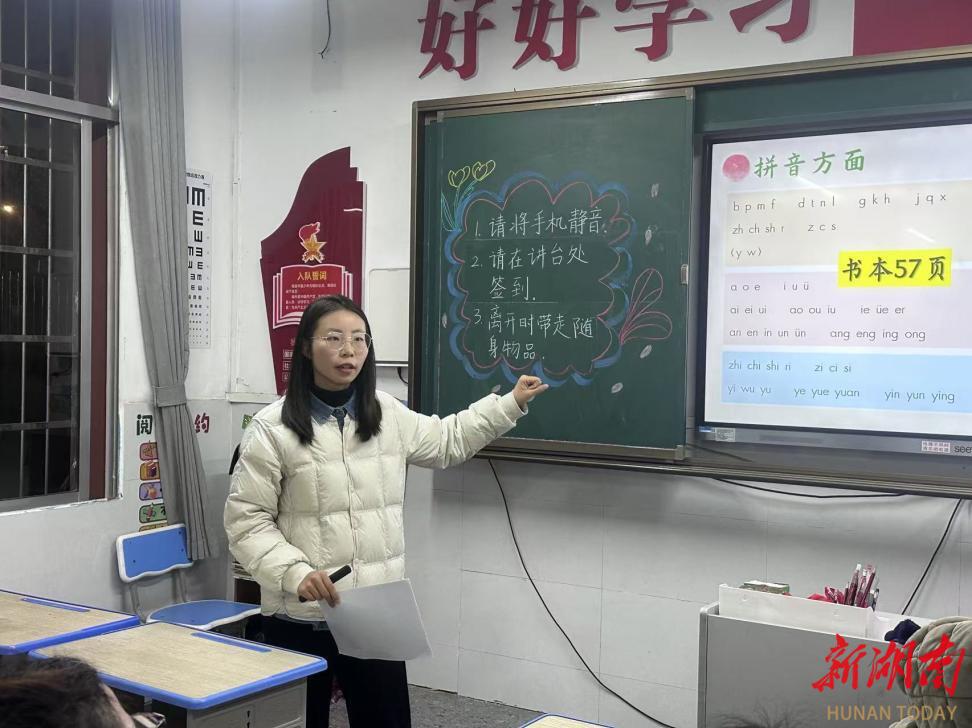 好好学习
入队誓词
1. 请将手机静音.
2. 请在讲台处
签到.
3. 离开时带走随
身物品.
拼音方面
b p m f d t n l g k h j q x
zh ch sh r z c s
(y w)
书本57页
a o e i u ü
ai ei ui ao ou iu ie üe er
an en in un ün ang eng ing ong
zhi chi shi ri zi ci si
yi wu yu ye yue yuan yin yun ying
阅
约
see
新湖南
HUNAN TODAY